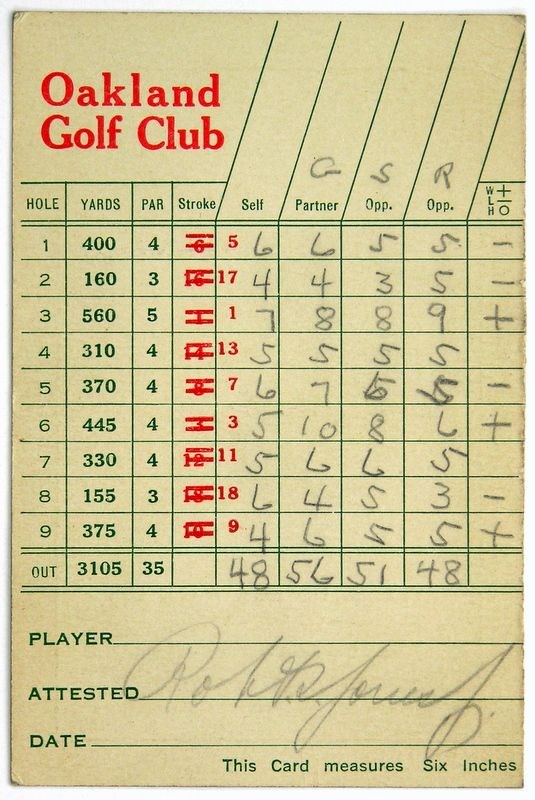 Oakland
Golf Club
G S R
HOLE YARDS PAR Stroke Self Partner Opp. Opp. W + L – H O
1 400 4 6 5 6 6 5 5 –
2 160 3 16 17 4 4 3 5 –
3 560 5 1 1 7 8 8 9 +
4 310 4 14 13 5 5 5 5
5 370 4 8 7 6 7 5 –
6 445 4 3 3 5 10 8 6 +
7 330 4 12 11 5 6 6 5
8 155 3 18 18 6 4 5 3 –
9 375 4 10 9 4 6 5 5 +
OUT 3105 35 48 56 51 48
PLAYER
ATTESTED Robt. T. Jones Jr.
DATE
This Card measures Six Inches